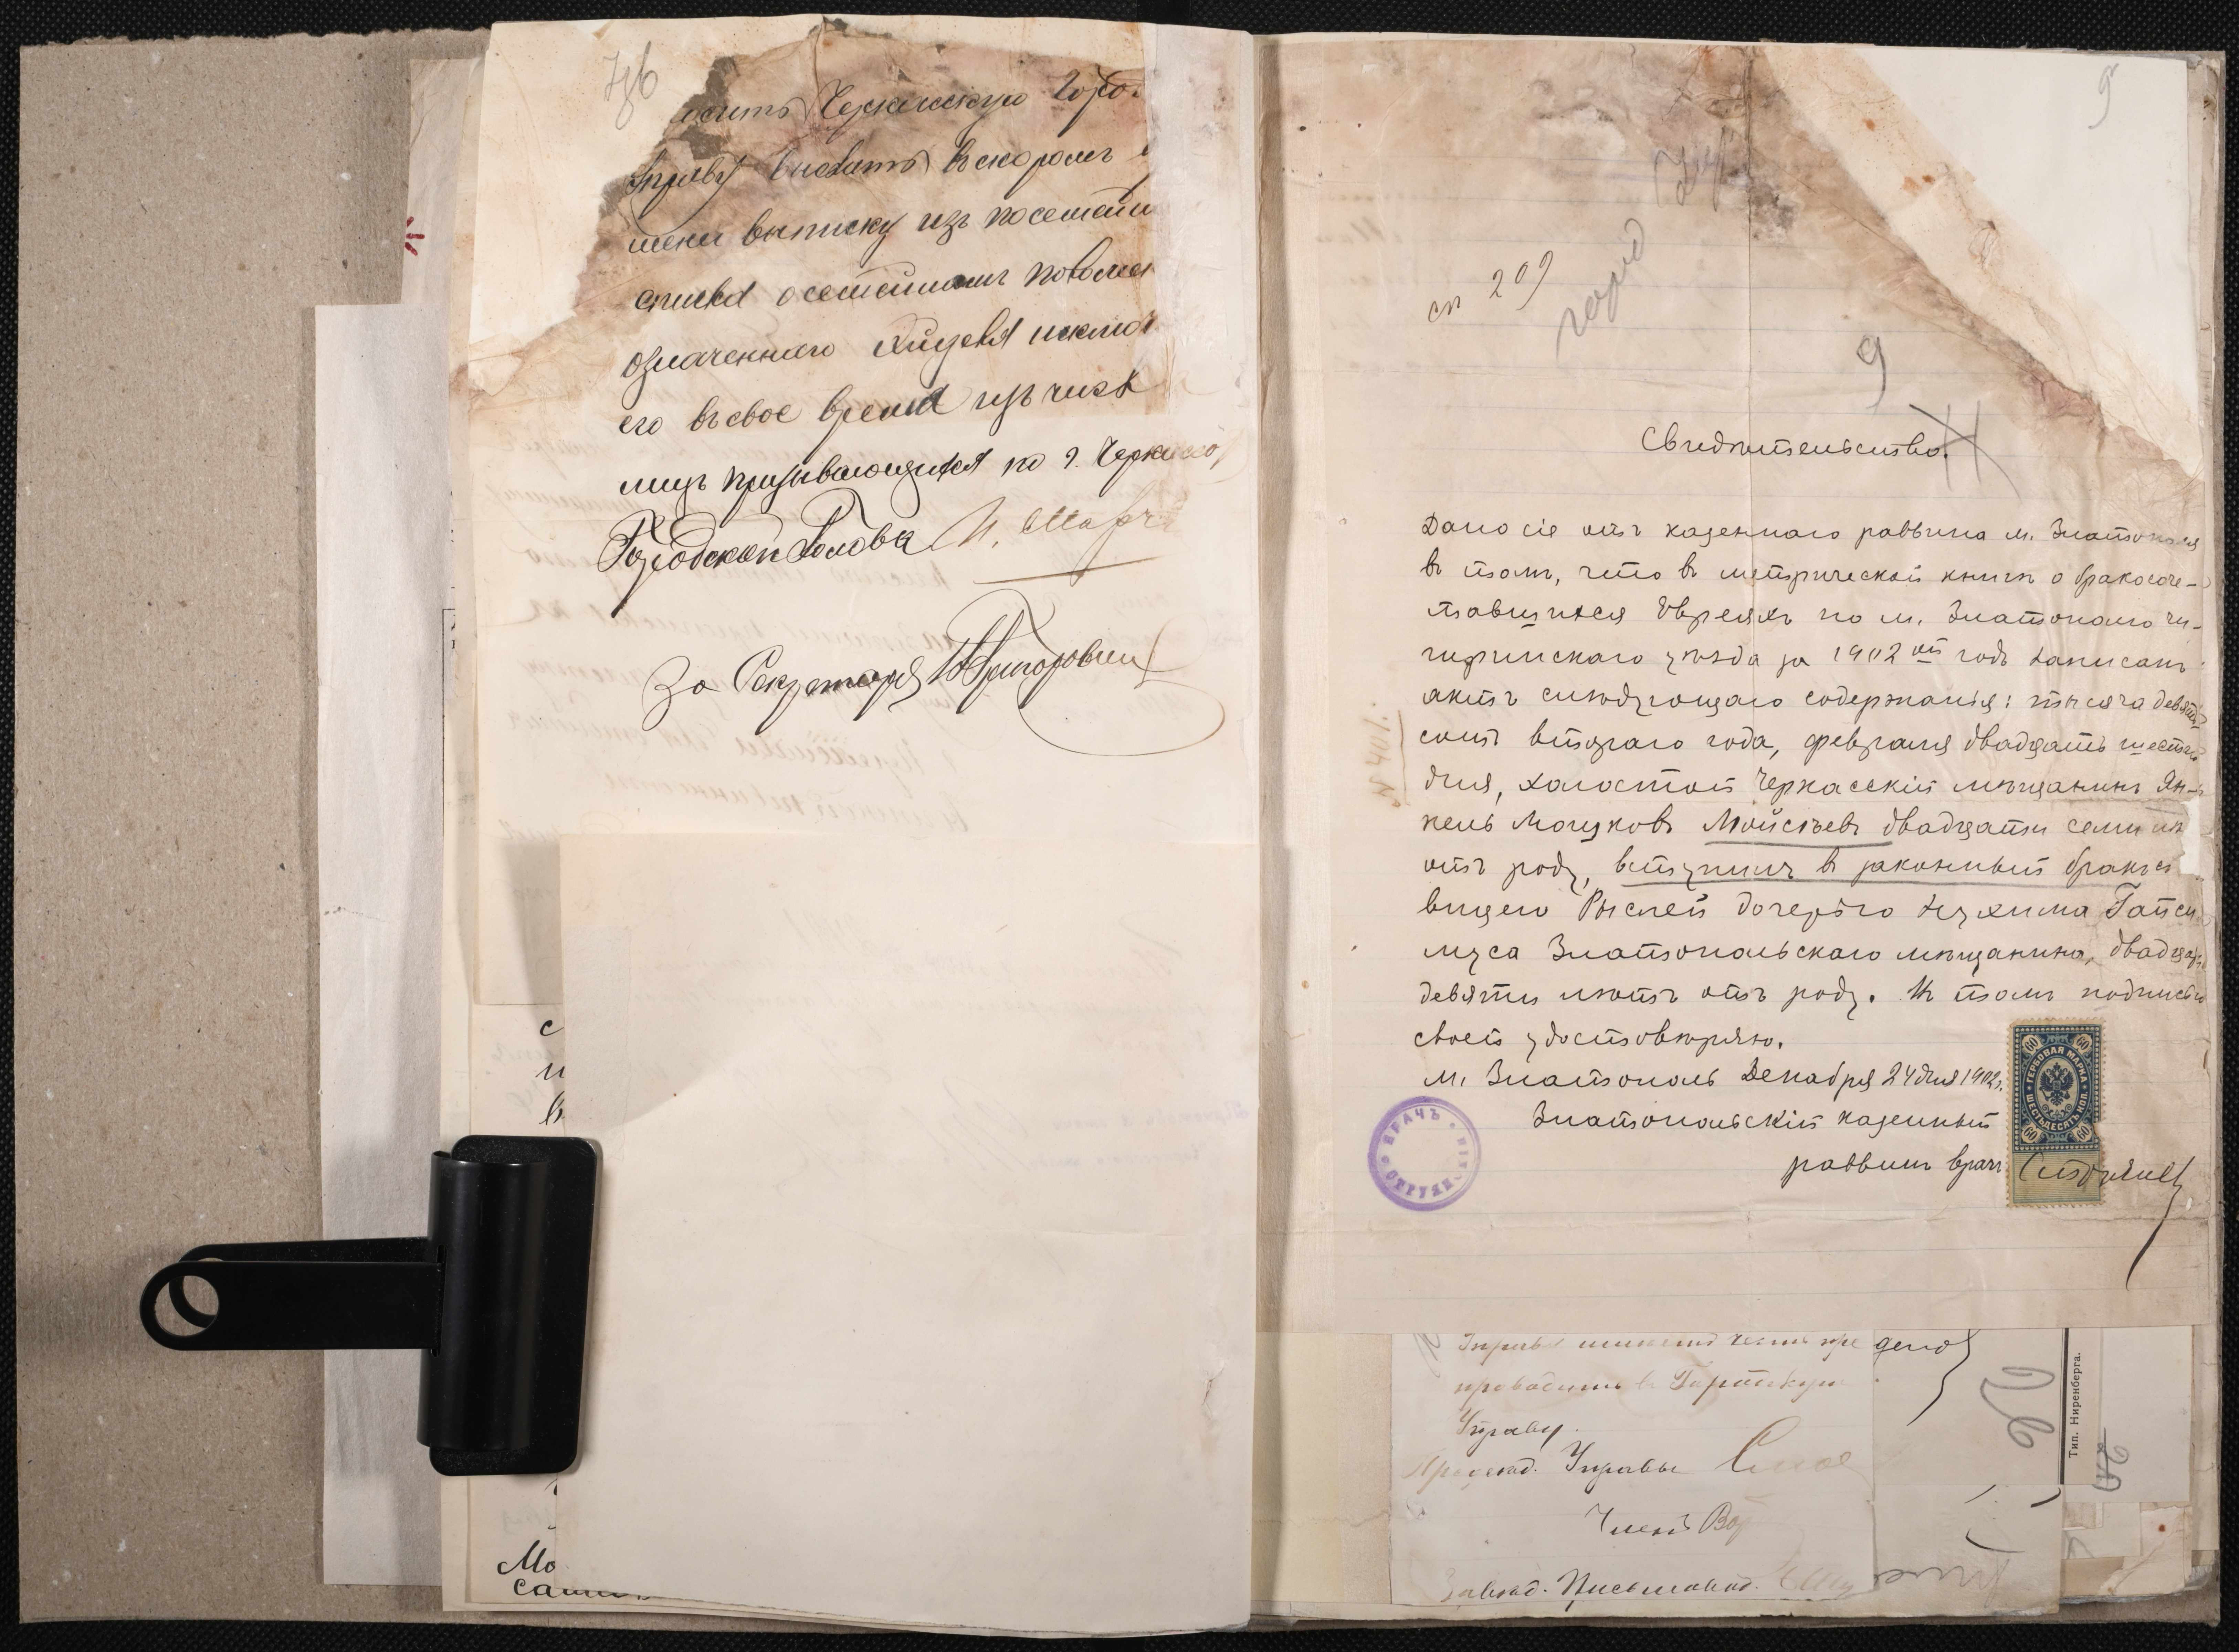 Черкасскую Горо-
Управу выслать въ скоромъ
мени выписку изъ посемейн
списка о семейномъ положен
означеннаго Хацкеля исключ
его въ свое время изъ числа
лицъ призывающихся по г. Черкассо
Городской Голова
За Секретаря
9
сп 209
город
9
Свидѣтельство.
Дано сіе отъ казеннаго раввина м. Златополя
въ томъ, что въ метрической книгѣ о бракосоче-
тавшихся Евреяхъ по м. Златополю Чи-
гиринскаго уѣзда за 1902 ой годъ записанъ
актъ слѣдующаго содержанія: тысяча девять
сотъ второго года, февраля двадцать шестого
дня, холостой Черкасскій мѣщанинъ Ян-
кель Мошковъ Мойсѣевъ двадцати семи лѣ
отъ роду, вступилъ въ законный бракъ съ
вицею Рыслей дочерью Нухима Гапси
муса Златопольскаго мѣщанина, двадца
девяти лѣтъ отъ роду. Въ томъ подписью
своею удостовѣряю.
м. Златополь Декабря 24 дня 1902 г.
Златопольскій казенный
раввинъ врачъ
№ 401.
ВРАЧЪ
ГЕРБОВАЯ МАРКА
ШЕСТЬДЕСЯТЪ КОП.
60 60
60 60
с
и
в
Мо
препроводить въ Городскую
Управу.
Предсѣд. Управы
Членъ
Завѣд. Письмовод.
Тип. Ниренберга.